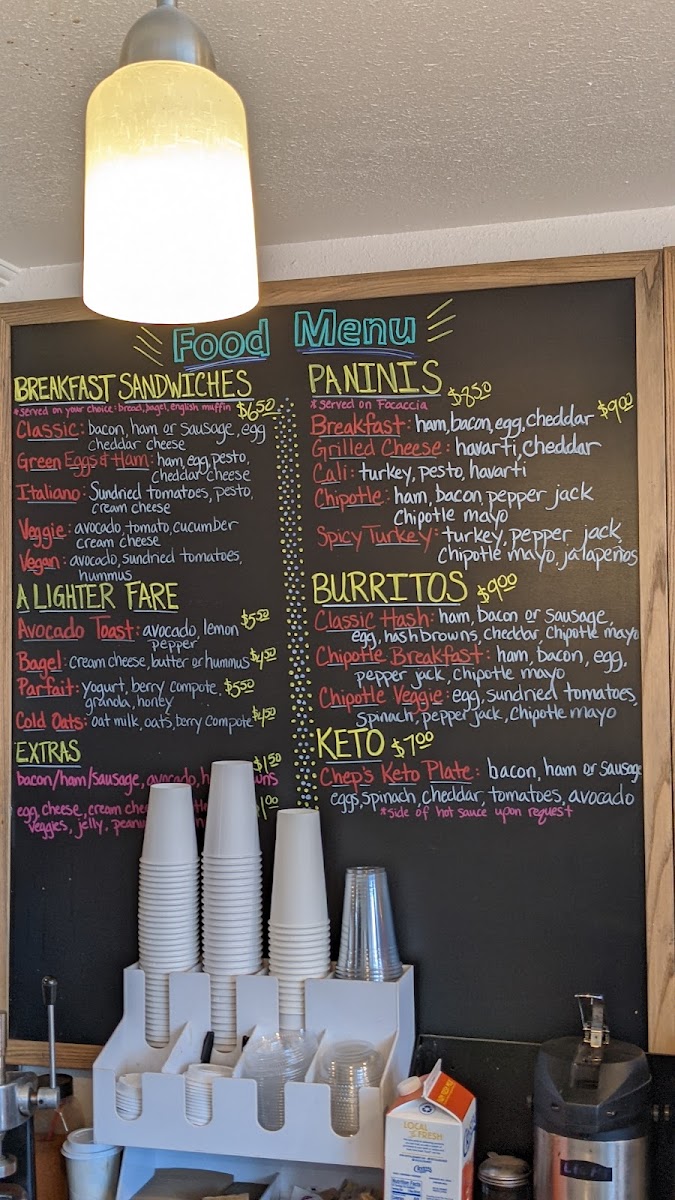 Food Menu
BREAKFAST SANDWICHES
*served on your choice: bread, bagel, english muffin $6.50
Classic: bacon, ham or sausage, egg
cheddar cheese
Green Eggs & Ham: ham, egg, pesto,
cheddar cheese
Italiano: Sundried tomatoes, pesto,
cream cheese
Veggie: avocado, tomato, cucumber
cream cheese
Vegan: avocado, sundried tomatoes,
hummus
A LIGHTER FARE
Avocado Toast: avocado, lemon $5.50
pepper
Bagel: cream cheese, butter or hummus $4.50
Parfait: yogurt, berry compote, $5.50
granola, honey
Cold Oats: oat milk, oats, berry compote $4.50
EXTRAS
$1.50
bacon/ham/sausage, avocado,
egg, cheese, cream
veggies, jelly,
PANINIS $8.50
*served on Focaccia
Breakfast: ham, bacon, egg, cheddar $9.00
Grilled Cheese: havarti, cheddar
Cali: turkey, pesto, havarti
Chipotle: ham, bacon, pepper jack
Chipotle mayo
Spicy Turkey: turkey, pepper jack,
Chipotle mayo, jalapeños
BURRITOS $9.00
Classic Hash: ham, bacon or sausage,
egg, hashbrowns, cheddar, chipotle mayo
Chipotle Breakfast: ham, bacon, egg,
pepper jack, chipotle mayo
Chipotle Veggie: egg, sundried tomatoes,
spinach, pepper jack, chipotle mayo
KETO $7.00
Chep's Keto Plate: bacon, ham or sausage
eggs, spinach, cheddar, tomatoes, avocado
*side of hot sauce upon request
LOCAL
FRESH
Nutrition Facts